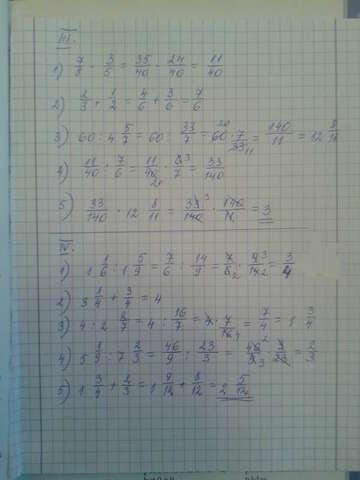 III.
1) 7/8 - 3/5 = 35/40 - 24/40 = 11/40
2) 2/3 + 1/2 = 4/6 + 3/6 = 7/6
3) 60 : 4 5/7 = 60 : 33/7 = 60 20 · 7/33 11 = 140/11 = 12 8/11
4) 11/40 : 7/6 = 11/40 20 · 6 3/7 = 33/140
5) 33/140 · 12 8/11 = 33 3/140 · 140/11 = 3
IV.
1) 1 1/6 : 1 5/9 = 7/6 : 14/9 = 7/6 2 · 9 3/14 2 = 3/4
2) 3 1/4 + 3/4 = 4
3) 4 : 2 2/7 = 4 : 16/7 = 4 · 7/16 4 = 7/4 = 1 3/4
4) 5 1/9 : 7 2/3 = 46/9 : 23/3 = 46 2/9 3 · 3/23 = 2/3
5) 1 3/4 + 2/3 = 1 9/12 + 8/12 = 2 5/12